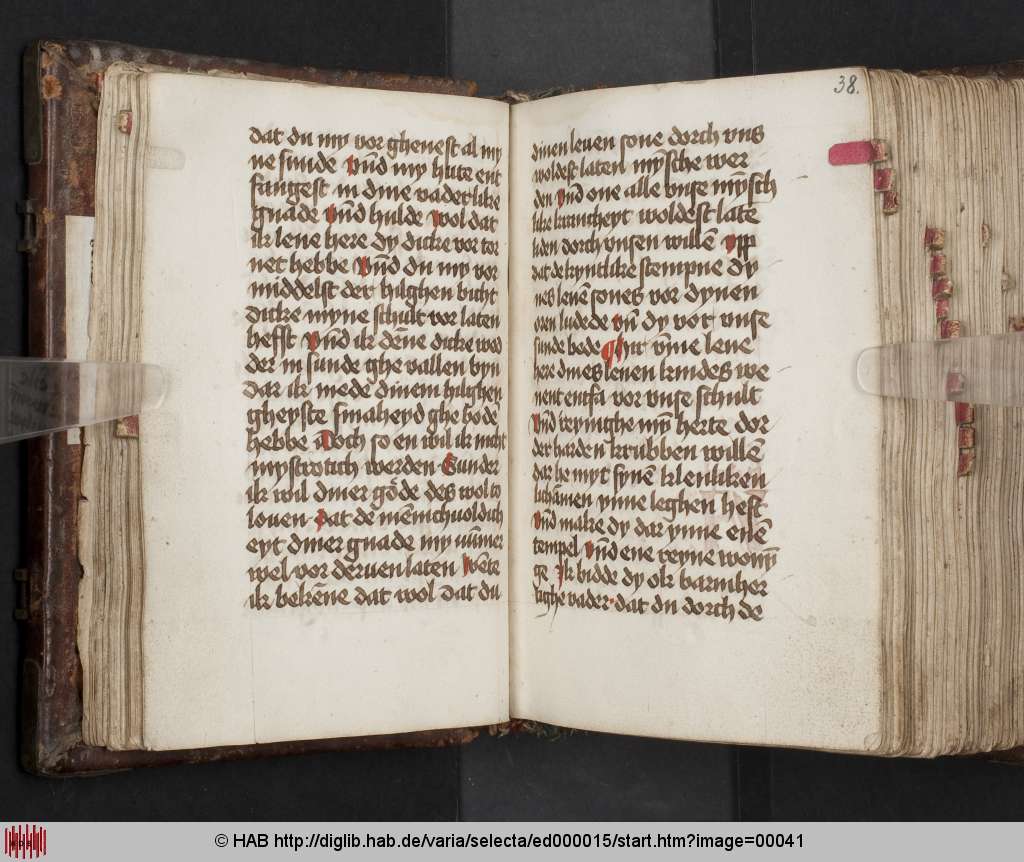 dat du my vor ghenest al my
ne sunde vn̄d my hute ent
fangest in dine vaderlike
gnade vn̄d hulde wol dat
ik leue here dy dicke vor tor
net hebbe vn̄d du my vor
middelst der hilghen bicht
dicke myne schult vor laten
hefst vn̄d ik dēne dicke wed
der in sunde ghe vallen byn
dar ik mede dinem hilghen
gheyste smaheyd ghe bode
hebbe Noch so en wil ik nicht
mystrotich werden Sunder
ik wil diner gode des wol to
louen dat de mēnichuoldich
eyt diner gnade my nūmer
wel vor deruen laten Wēte
ik bekēne dat wol dat du
38.
dinen leuen sone dorch vns
woldest laten mȳsche wer
den vn̄d one alle vnse mȳsch
like krancheyt woldest late
liden dorch vnsen willē vpp
dat de kyntlike stempne dy
nes leuē sones vor dynen
oren ludede vn̄ dy vor vnse
sunde bede Hir v̄me leue
here dines leuen kindes we
nent entfa vor vnse schult
vn̄d reynighe myn herte dor
der harden krubben willē
dar he myt synē klenliken
lichāmen ynne leghen hest
vn̄d make dy dar ynne enē
tempel vn̄d ene reyne wonȳ
ge Ik bidde dy ok barmher
tighe vader dat du dorch de
© HAB http://diglib.hab.de/varia/selecta/ed000015/start.htm?image=00041